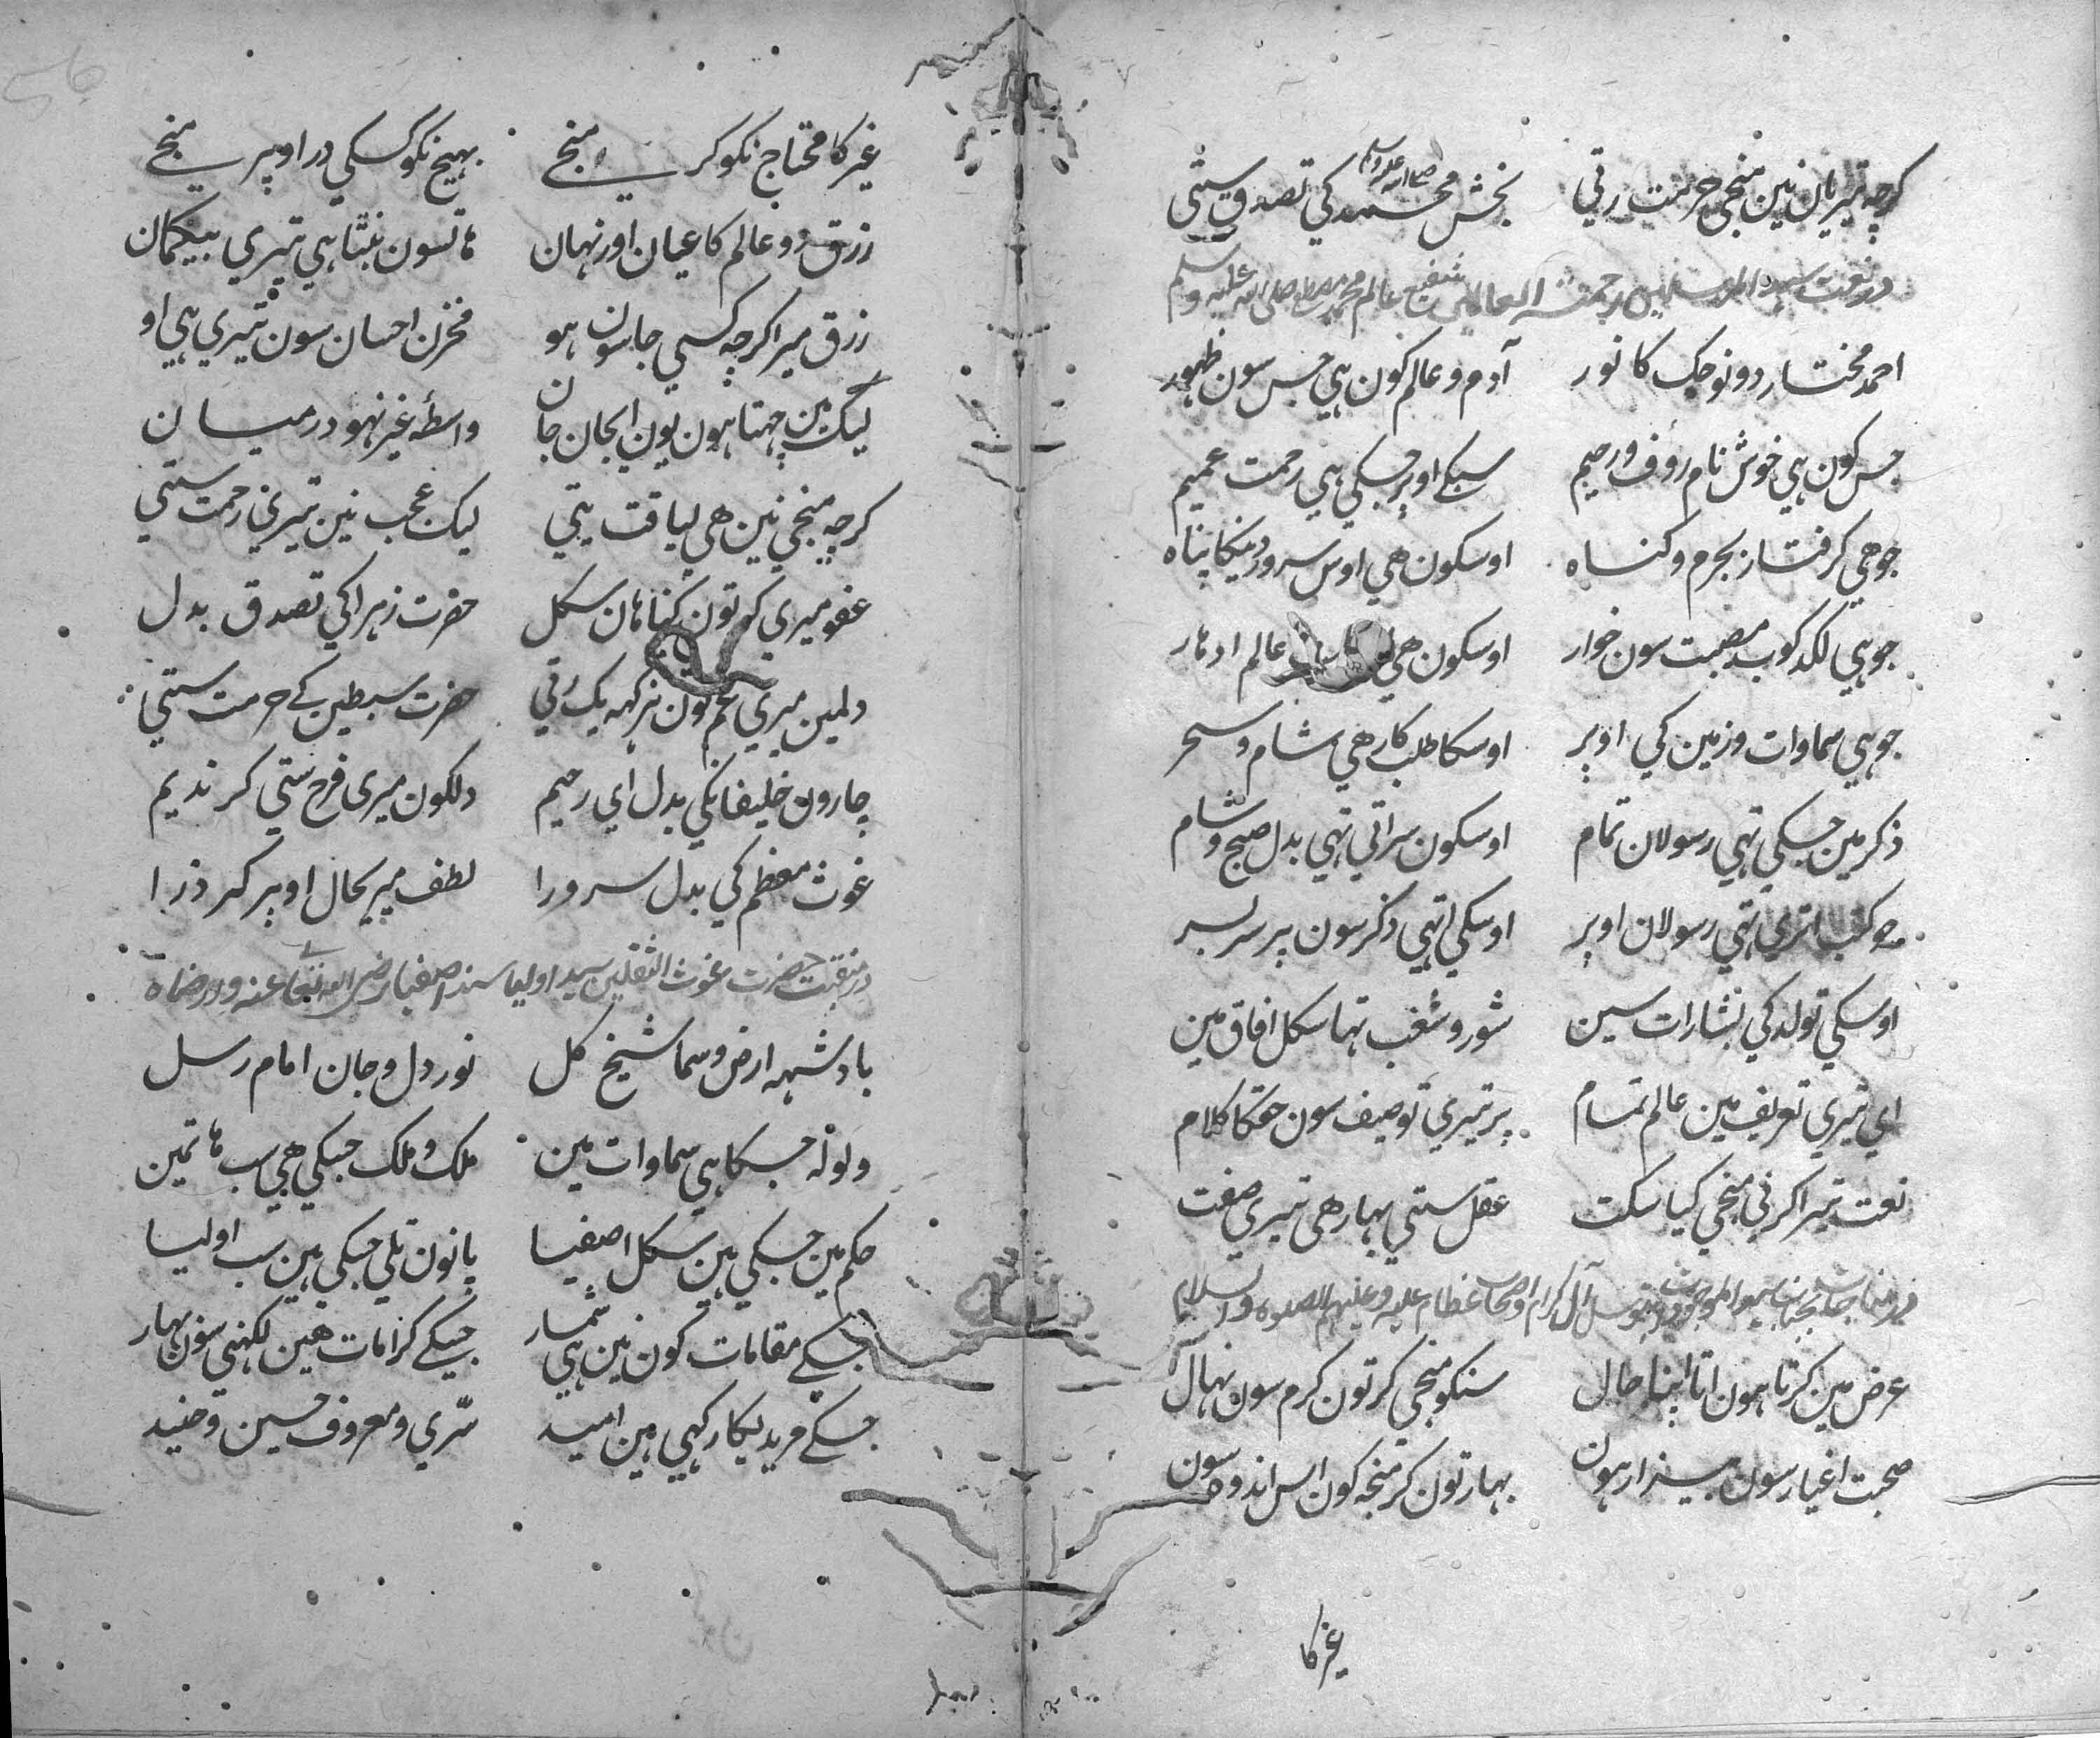 کرچہ تیریان نین منجی حرمت رتی بخش محمد کی تصدق ستی
صلی اللہ علیہ وسلم
در نعت سید المرسلین رحمتہ العالمین شفیع عالم محمد مصطفی صلی اللہ علیہ وسلم
احمد مختار دونو جک کا نور آدم و عالم کون ہی جس سون ظہور
جس کون ہی خوش نام روف و رحیم سبکے اوپر جسکی ہی رحمت عمیم
جو ہی کرفتار بجرم و کناہ اوسکون ہی اوس سرور دینکا پناہ
جو ہی لکد کوب مصیبت سون خوار اوسکون ہی عالم ادہار
جو ہی سماوات و زمین کی اوپر اوسکا طلبکار ہی شام و سحر
ذکر مین جسکی تہی رسولان تمام اوسکون سراتی تہی بدل صبح و شام
جو کتب اتری تہی رسولان اوپر اوسکی اتہی ذکر سون پر سربسر
اوسکی تولد کی بشارات سین شور و شغب تہا سکل افاق مین
ای تیری تعریف مین عالم تمام پر تیری توصیف سون حقکا کلام
نعت تیرا کرنی منجی کیا سکت عقل ستی بہار ہی تیری صفت
در مناجات بجناب سید الموجودات بتوسل آل کرام و اصحاب عظام علیہ و علیہم الصلوہ والسلام
عرض مین کرتا ہون اتا اپنا حال سنکو منجی کر تون کرم سون نہال
صحبت اغیار سون بیزار ہون بہار تون کر منجہ کون اس اندوہ سون
غیر کا
غیر کا محتاج نکو کر منجے بہیج نکو کسکی در اوپر منجے
رزق دو عالم کا عیان اور نہان ہاتسون بنتا ہی تیری بیکمان
رزق میرا کرچہ کسی جا سون ہو مخزن احسان سون تیری ہی او
لیک مین چہتا ہون یون ایجان جان واسطۂ غیر نہو درمیان
کرچہ منجی نین ہی لیاقت یتی لیک عجب نین تیری رحمت ستی
عفو میری کر تون کناہان سکل حضرت زہرا کی تصدق بدل
دلمین میری غم تون نرکہہ یک رتی حضرت سبطین کے حرمت ستی
چارون خلیفانکی بدل ای رحیم دلکون میری فرح ستی کر ندیم
غوث معظم کی بدل سرورا لطف میریحال اوپر کر ذرا
در منقبت حضرت غوث الثقلین سید اولیا سند اصفیا رضی اللہ تعالی عنہ و ارضاہ
بادشہہ ارض و سما شیخ کل نور دل و جان امام رسل
ولولہ جسکا ہی سماوات مین ملک و ملک جسکی ہی سب ہاتمین
حکم مین جسکی ہین سکل اصفیا پانون تلی جسکی ہین سب اولیا
جسکے مقامات کون نین ہی شمار جسکے کرامات ہین لکہنی سون بہار
جسکے مرید یکا رکہی ہین امید سّری و معروف حسین و جنید